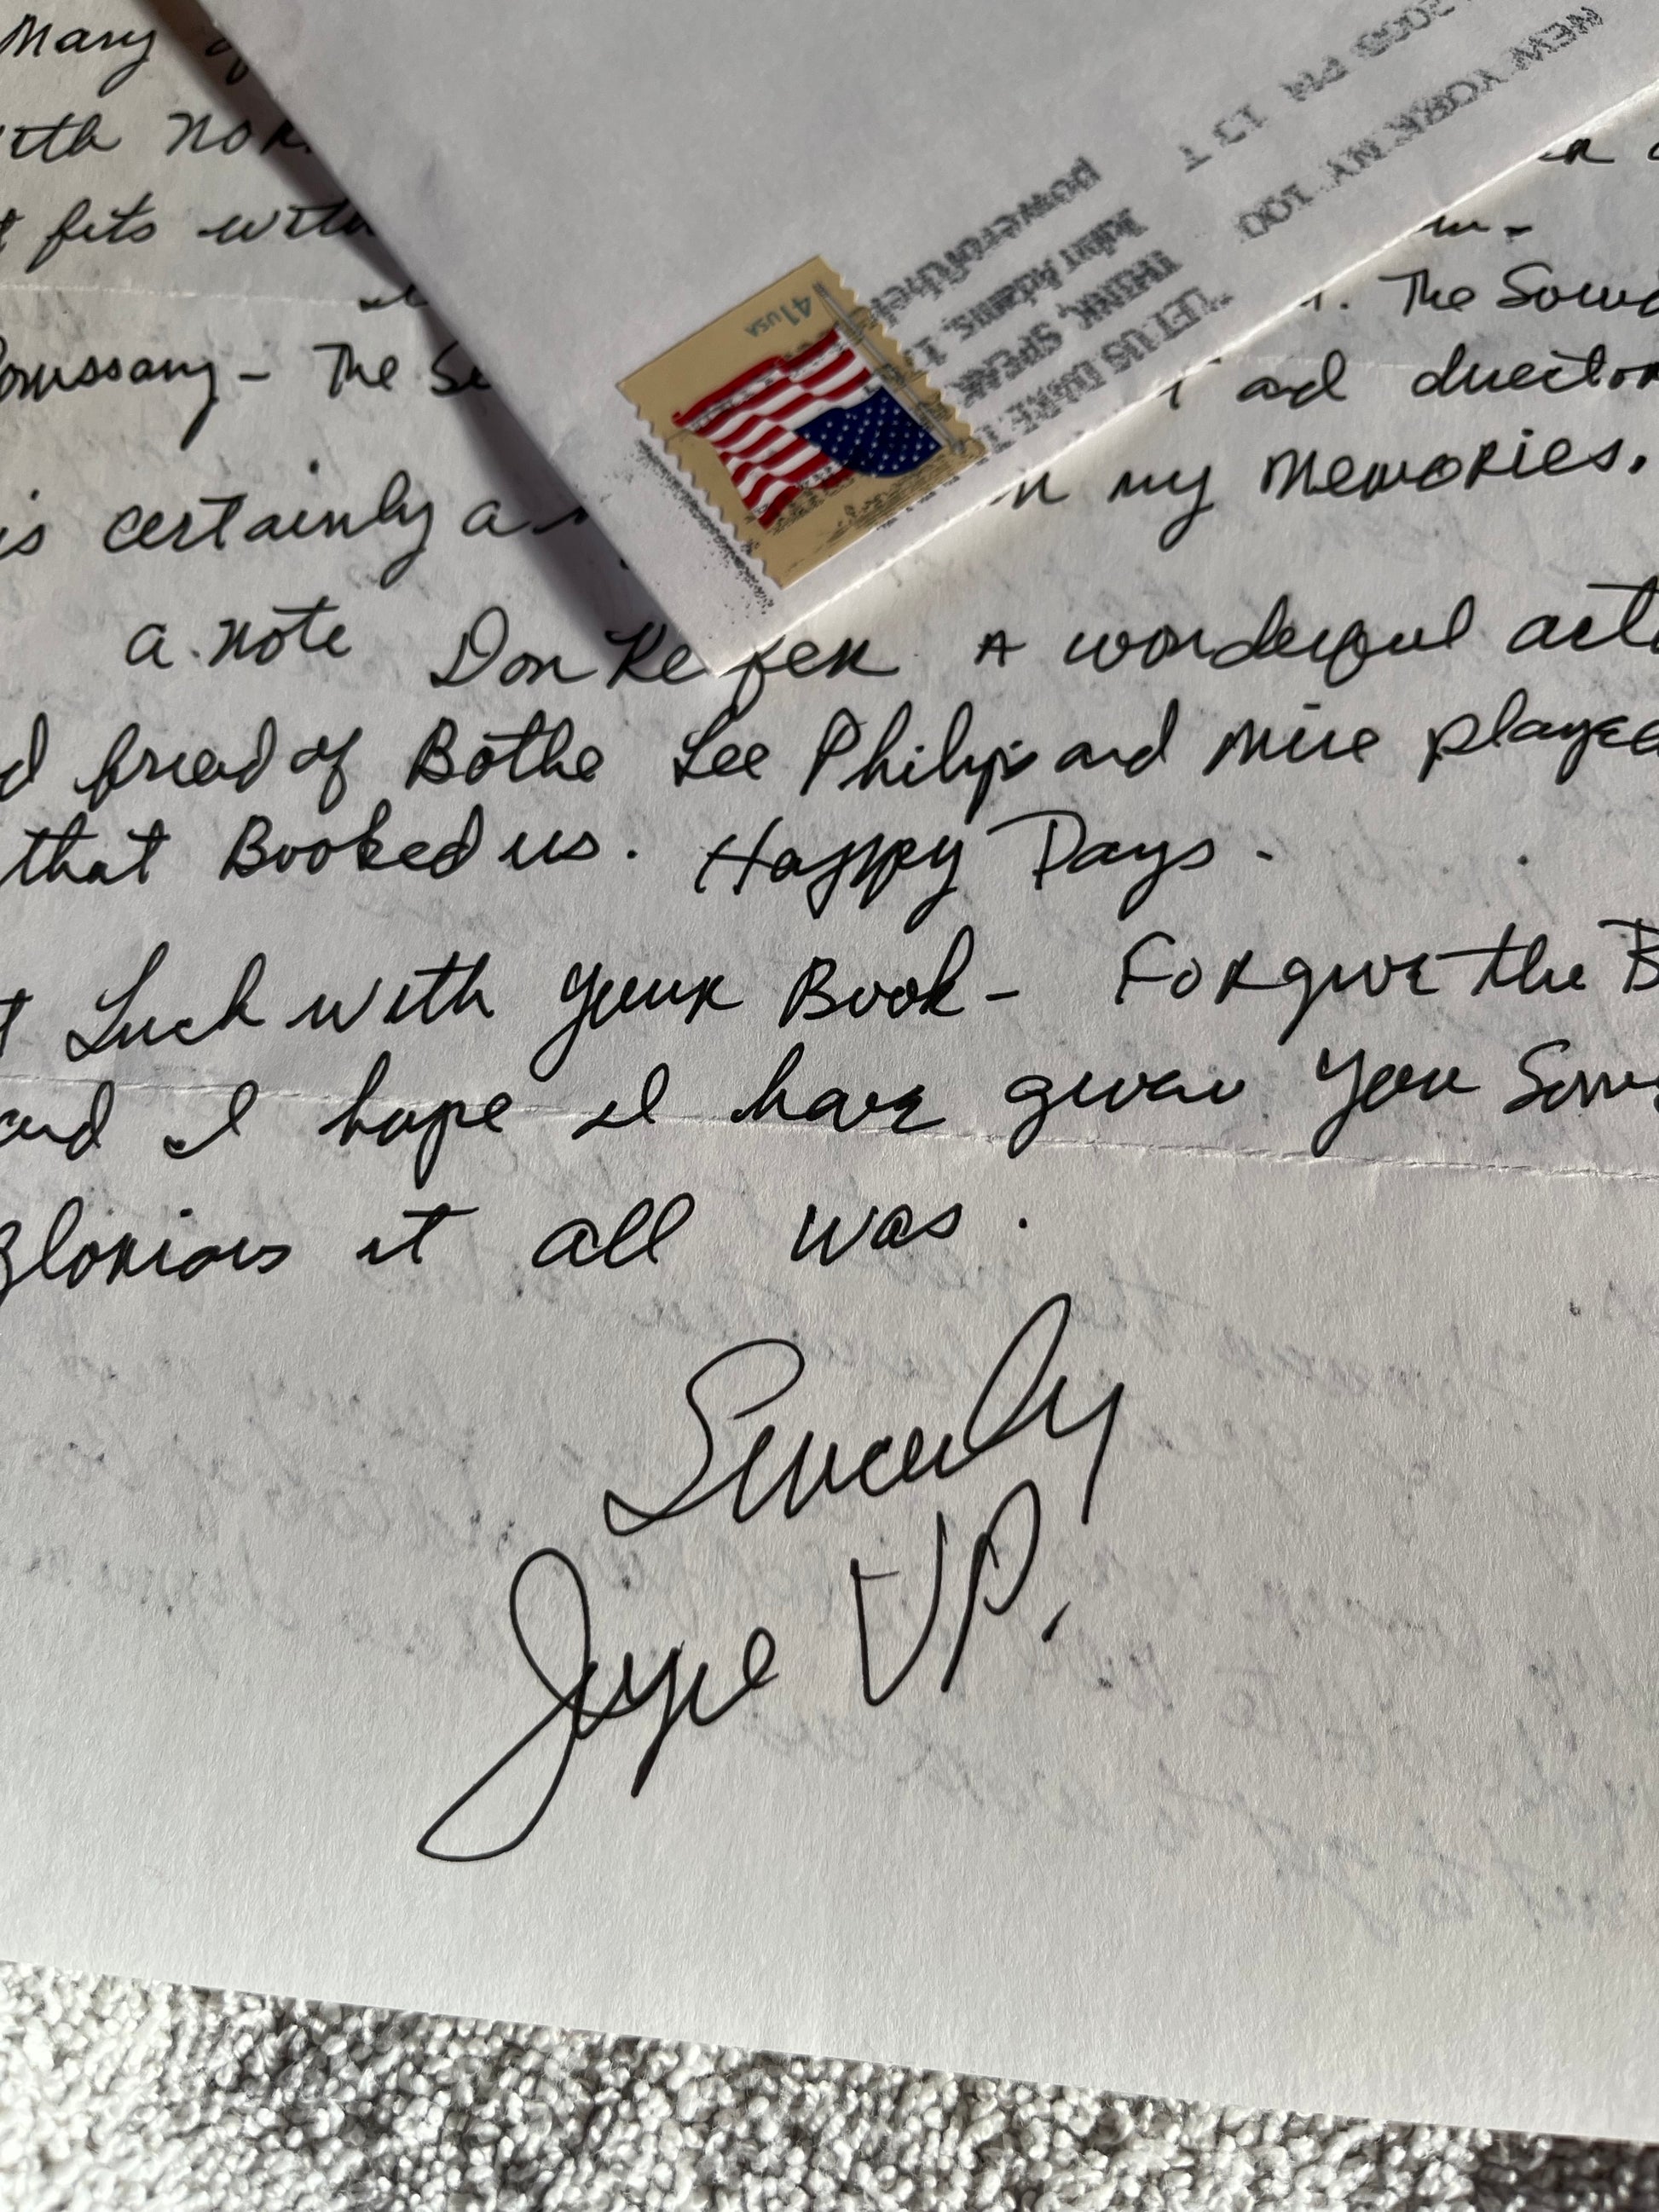 Mary
with nor
t fits with
in-
. The Sound
The Se
ad director
is certainly a
in my Memories.
a note Don Ke fer A wonderful act
d friend of Bothe Lee Philips and Mine played
that Booked us. Happy Days -
t Luck with your Book - Forgive the B
and I hope I have given you Som
glorious it all was.
Sincerly
Joyce VP.
41 USA
NEW YORK NY 100
PM 13 T
"LET US DARE T
THINK, SPEAK
John Adams, 17
powerofthel